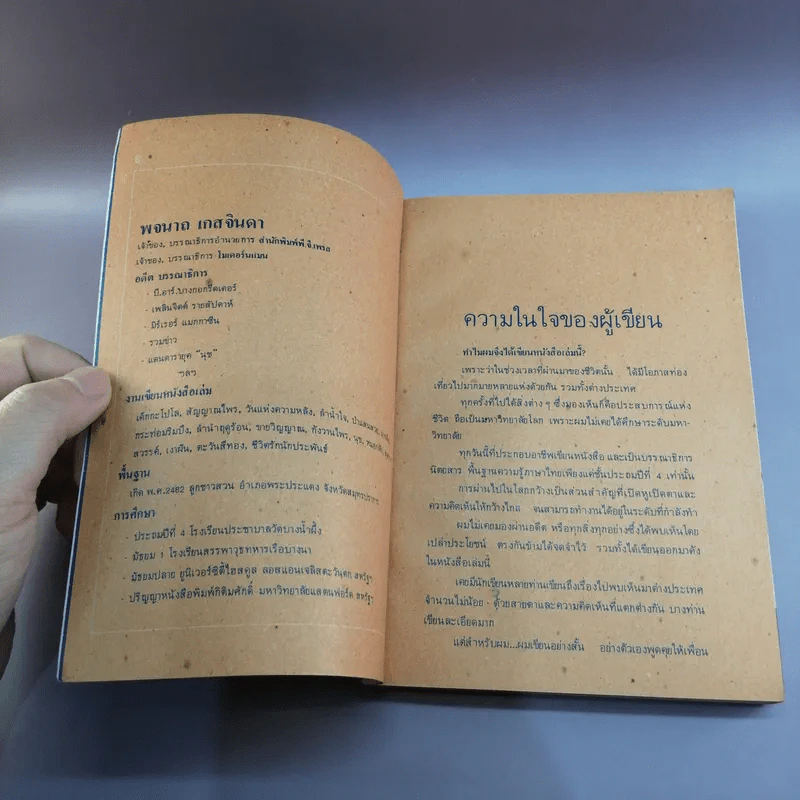 พจนาถ เกสจินดา
เจ้าของ, บรรณาธิการอำนวยการ สำนักพิมพ์พี.จี.เพรส
เจ้าของ, บรรณาธิการ โมเดอร์นแมน
อดีต บรรณาธิการ
- บี.อาร์.บางกอกรีดเดอร์
- เพลินจิตต์ รายสัปดาห์
- มิร์เรอร์ แมกกาซีน
- รวมข่าว
- แดนดารายุค "นุช"
ฯลฯ
งานเขียนหนังสือเล่ม
เด็กกะโปโล, สัญญาณไพร, วันแห่งความหลัง, ลำน้ำใจ,
กระท่อมริมบึง, ลำนำฤดูร้อน, ขายวิญญาณ, กังวานไพร, นุช,
สวรรค์, เงาฝัน, ตะวันสีทอง, ชีวิตรักนักประพันธ์
พื้นฐาน
เกิด พ.ศ.2482 ลูกชาวสวน อำเภอพระประแดง จังหวัดสมุทรปราการ
การศึกษา
- ประถมปีที่ 4 โรงเรียนประชาบาลวัดบางน้ำผึ้ง
- มัธยม 1 โรงเรียนสรรพาวุธทหารเรือบางนา
- มัธยมปลาย ยูนิเวอร์ซิตี้ไฮสคูล ลอสแอนเจลิสตะวันตก สหรัฐฯ
- ปริญญาหนังสือพิมพ์กิติมศักดิ์ มหาวิทยาลัยแสตนฟอร์ด สหรัฐฯ
ความในใจของผู้เขียน
ทำไมผมจึงได้เขียนหนังสือเล่มนี้?
เพราะว่าในช่วงเวลาที่ผ่านมาของชีวิตนั้น ได้มีโอกาสท่อง
เที่ยวไปมากมายหลายแห่งด้วยกัน รวมทั้งต่างประเทศ
ทุกครั้งที่ไปได้สิ่งต่าง ๆ ซึ่งมองเห็นก็คือประสบการณ์แห่ง
ชีวิต ถือเป็นมหาวิทยาลัยโลก เพราะผมไม่เคยได้ศึกษาระดับมหา-
วิทยาลัย
ทุกวันนี้ที่ประกอบอาชีพเขียนหนังสือ และเป็นบรรณาธิการ
นิตยสาร พื้นฐานความรู้ภาษาไทยเพียงแค่ชั้นประถมปีที่ 4 เท่านั้น
การผ่านไปในโลกกว้างเป็นส่วนสำคัญที่เปิดหูเปิดตาและ
ความคิดเห็นให้กว้างไกล จนสามารถทำงานได้อยู่ในระดับที่กำลังทำ
ผมไม่เคยมองผ่านอดีต หรือทุกสิ่งทุกอย่างซึ่งได้พบเห็นโดย
เปล่าประโยชน์ ตรงกันข้ามได้จดจำไว้ รวมทั้งได้เขียนออกมาดัง
ในหนังสือเล่มนี้
เคยมีนักเขียนหลายท่านเขียนถึงเรื่องไปพบเห็นมาต่างประเทศ
จำนวนไม่น้อย - ด้วยสายตาและความคิดเห็นที่แตกต่างกัน บางท่าน
เขียนละเอียดมาก
แต่สำหรับผม...ผมเขียนอย่างสั้น อย่างตัวเองพูดคุยให้เพื่อน